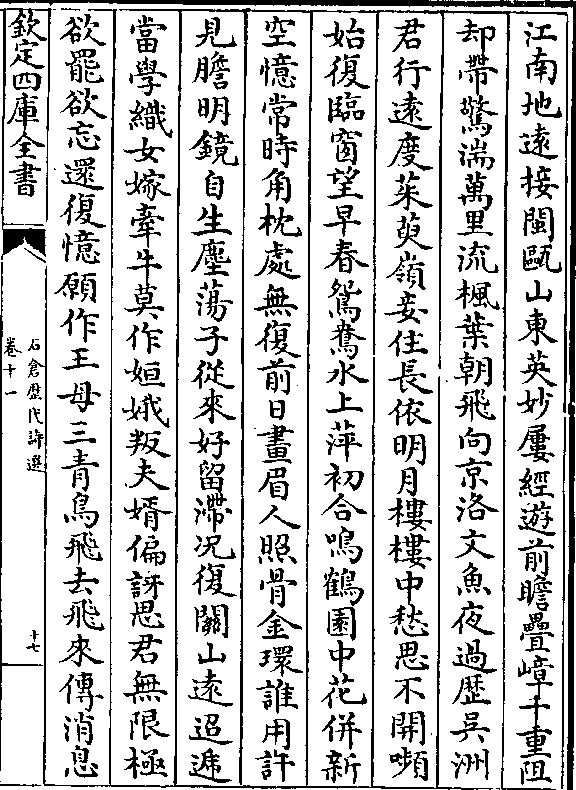 江南地遠接閩甌山東英妙屢經遊前瞻疊嶂千重阻
却帶驚湍萬里流楓葉朝飛向京洛文魚夜過歴吳洲
君行遠度茱萸嶺妾住長依明月樓樓中愁思不開嚬
始復臨窗望早春鴛鴦水上萍初合鳴鶴園中花併新
空憶常時角枕處無復前日畫眉人照骨金環誰用許
見膽明鏡自生塵蕩子從來好留滯况復關山遠迢遞
當學織女嫁牽牛莫作姮娥叛夫婿偏訝思君無限極
欲罷欲忘還復憶願作王母三青鳥飛去飛來傳消息
欽定四庫全書
石倉歴代詩選
卷十一
十七